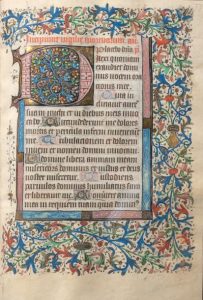 Incipiunt vigilie mortuorum. añ
Placebo dño. p̄s
Dilexi quoniam
exaudiet domi
nus vocem oratio
nis mee. Quia in
clinavit aurem
suam michi et in diebus meis invo
cabo. Circumdederunt me dolores
mortis et pericula inferni invenerunt
me. Tribulationem et dolorem
inveni et nomen domini invocavi.
O domine libera animam meam
misericors dominus et iustus et deus
noster miseretur. Custodiens
parvulos dominus humiliatus sum
et liberavit me. Convertere anima
mea in requiem tuam quia domi